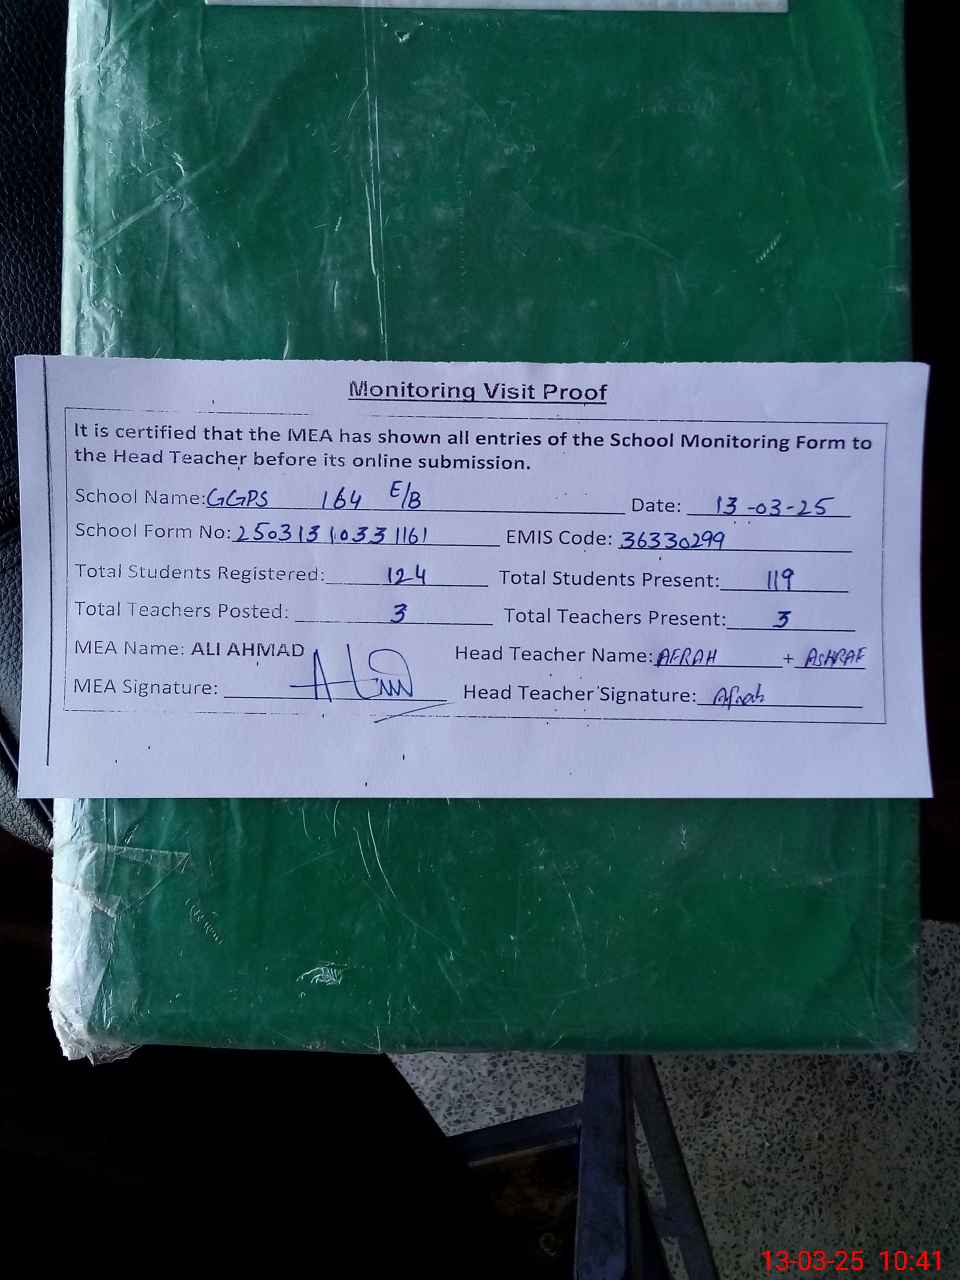 Monitoring Visit Proof
It is certified that the MEA has shown all entries of the School Monitoring Form to
the Head Teacher before its online submission.
School Name: GGPS 164 E/B Date: 13-03-25
School Form No: 25031310331161 EMIS Code: 36330299
Total Students Registered: 124 Total Students Present: 119
Total Teachers Posted: 3 Total Teachers Present: 3
MEA Name: ALI AHMAD Head Teacher Name: AFRAH + ASHRAF
MEA Signature: Head Teacher Signature: Afrah
13-03-25 10:41